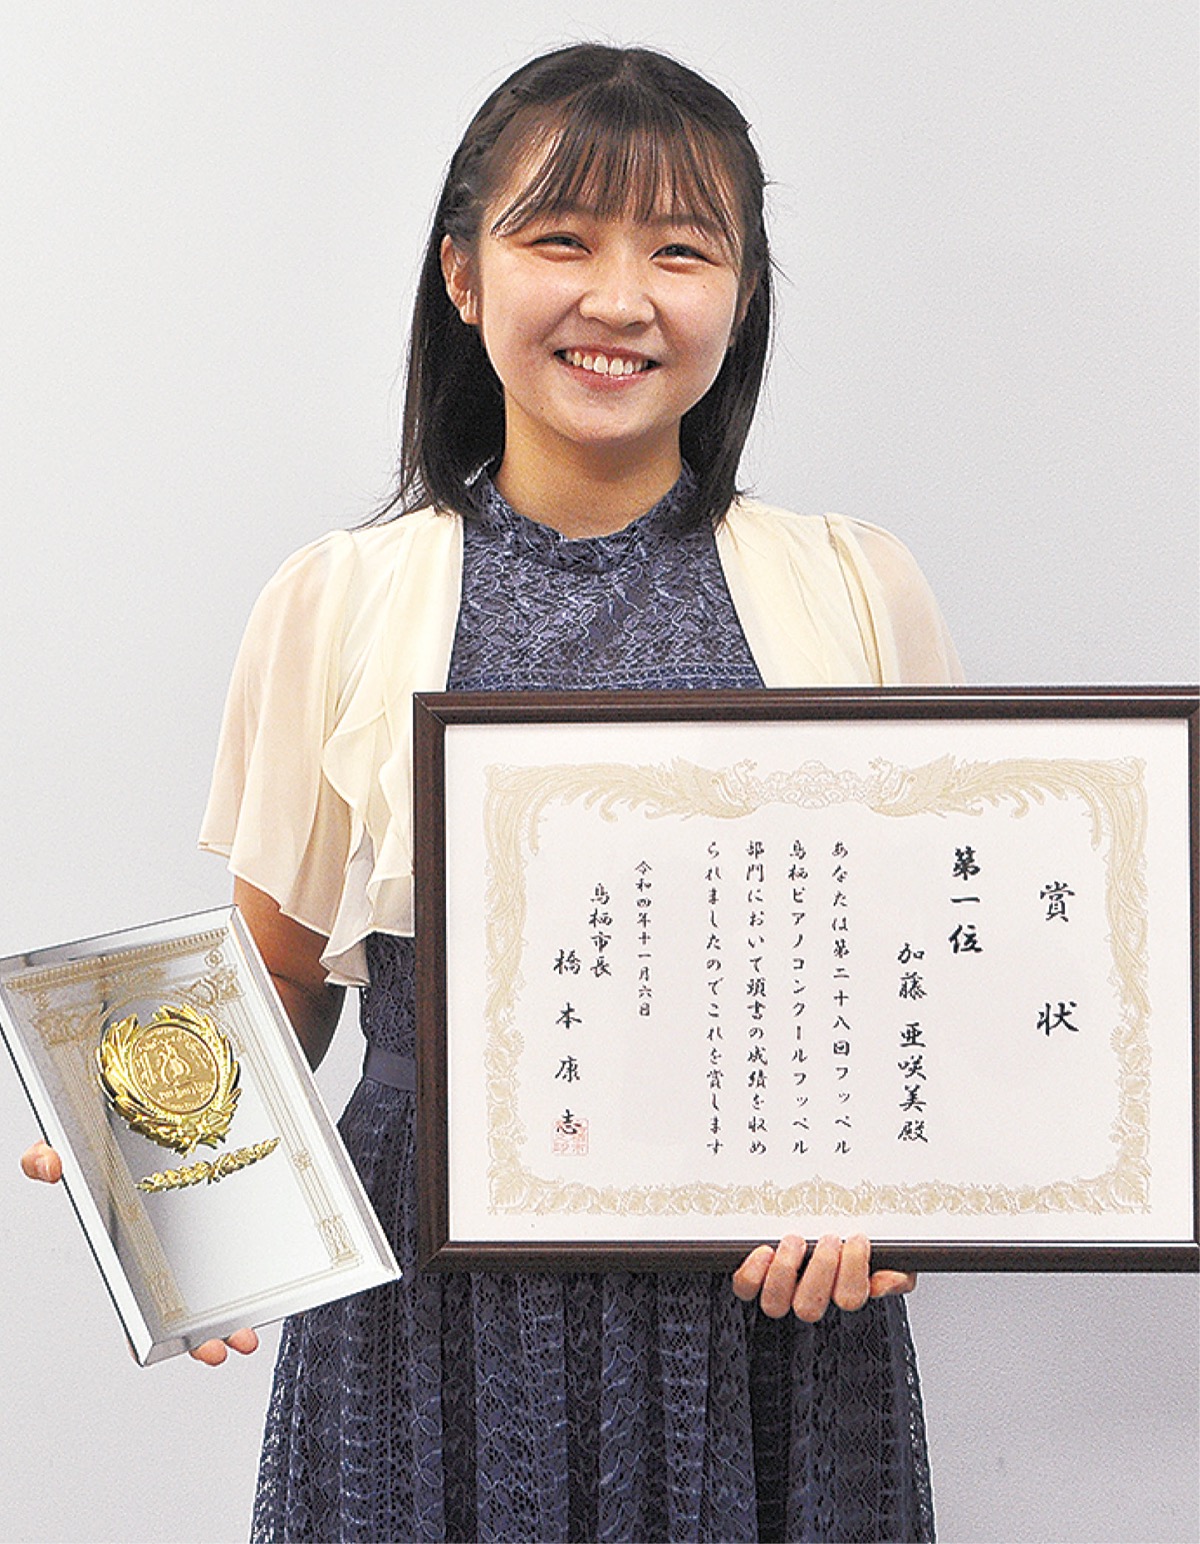 賞状
第一位
加藤 亜咲美殿
あなたは第二十八回フッペル
鳥栖ピアノコンクールフッペル
部門において頭書の成績を収め
られましたのでこれを賞します
令和四年十一月六日
鳥栖市長
橋本康志